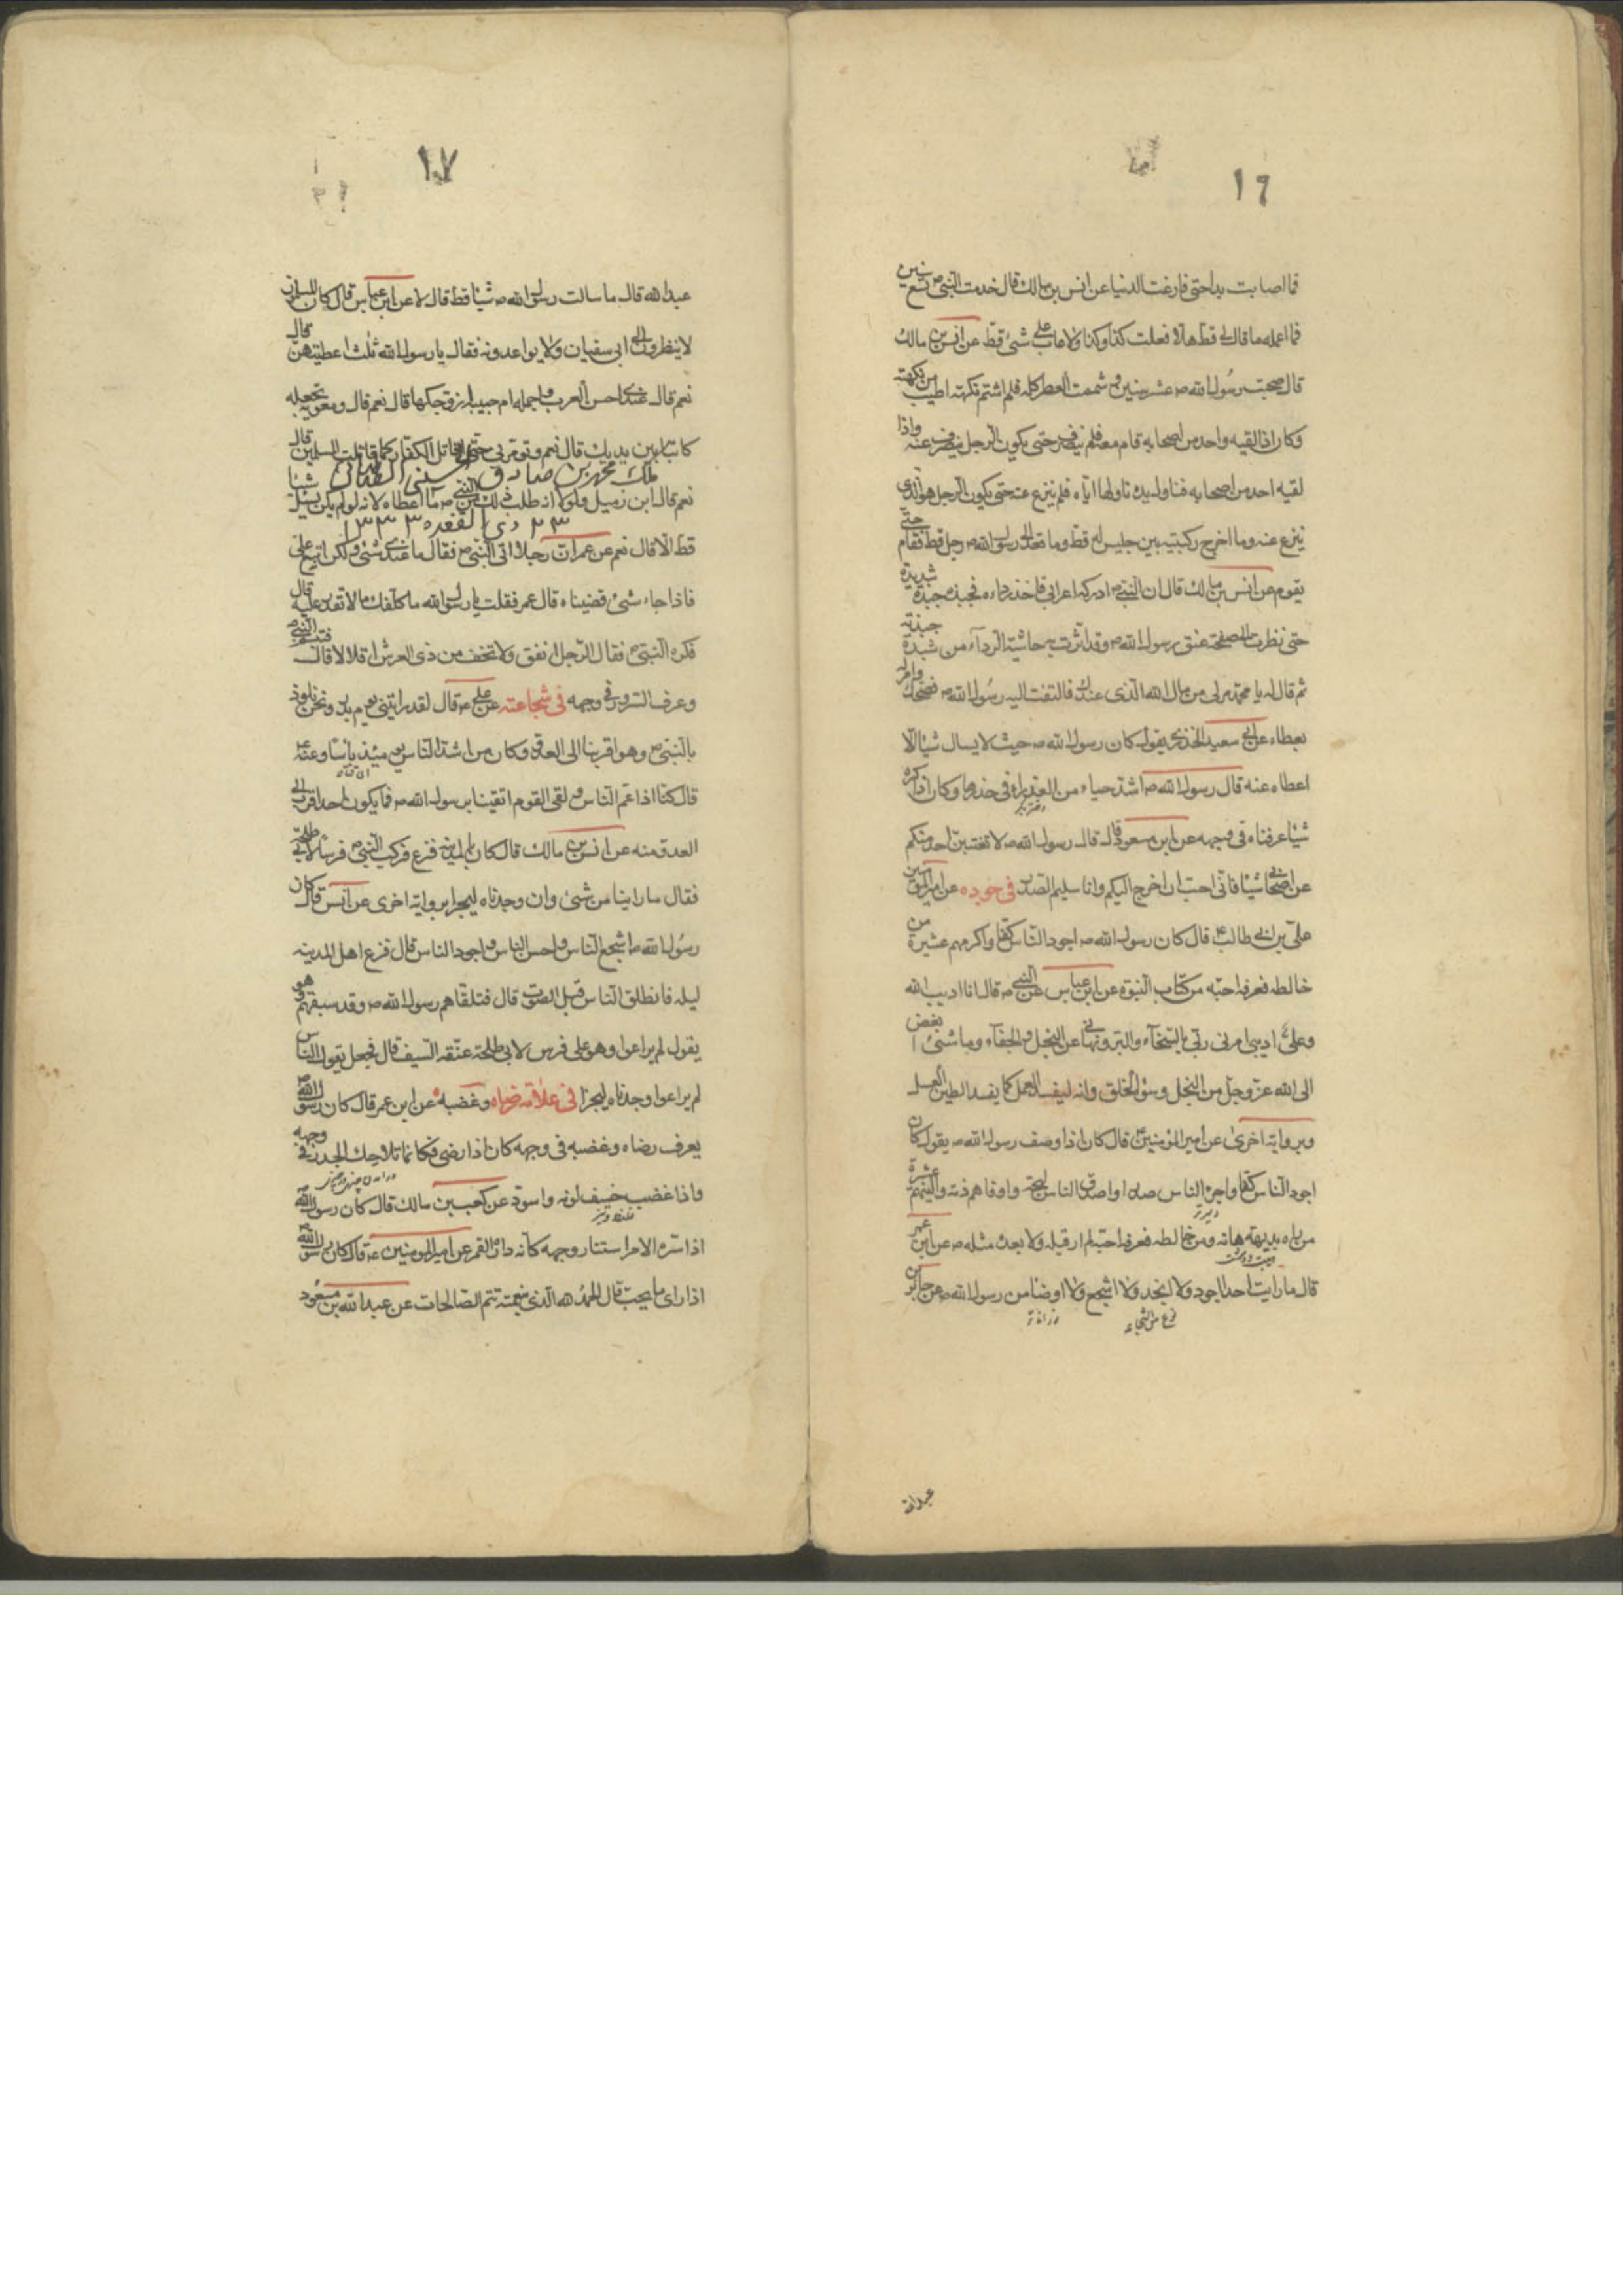 ١٦
فما اصابت يدا حتى فارغت الدنيا عن انس بن مالك قال خدمت النبي ص تسع سنين
فما اعلمه ما قال لي قط هلا فعلت كذا وكذا ولا عاب علي شئ قط عن انس بن مالك
قال صحبت رسول الله ص عشر سنين وشممت العطر كله فلم اشتم نكهته اطيب من نكهته
وكان اذا لقيه واحد من اصحابه قام معه فلم ينصرف حتى يكون الرجل ينصرف عنه واذا
لقيه احد من اصحابه فتناول يده ناولها اياه فلم ينزع عنه حتى يكون الرجل هو الذي
ينزع عنه وما اخرج ركبتيه بين جليس له قط وما قعد الى رسول الله ص رجل قط فقام حتى
يقوم عن انس بن مالك قال ان النبي ص ادركه اعرابي فاخذ رداءه فجبذه جبذة شديدة
حتى نظرت الى صفحة عنق رسول الله ص وقد اثرت به حاشية الرداء من شدة جبذته
ثم قال له يا محمد مر لي من مال الله الذي عندك فالتفت اليه رسول الله ص فضحك وامر له
بعطاء عن ابي سعيد الخدري يقول كان رسول الله ص حيث لا يسال شيئا الا
اعطاه عنه قال رسول الله ص اشد حياء من العذراء في خدرها وكان اذا كره
شيئا عرفناه في وجهه عن ابن مسعود قال قال رسول الله ص لا تغتبن احد منكم
عن اصحابي شيئا فاني احب ان اخرج اليكم وانا سليم الصدر في جوده عن امير المؤمنين
علي بن ابي طالب ع قال كان رسول الله ص اجود الناس كفا واكرمهم عشيرة من
خالطه فعرفه احبه من كتاب النبوة عن ابن عباس عن النبي ص قال انا اديب الله
وعلي اديبي امرني ربي بالسخاء والبر ونهاني عن البخل والجفاء وما شئ ابغض
الى الله عز وجل من البخل وسوء الخلق وانه ليفسد العمل كما يفسد الطين العسل
وبرواية اخرى عن امير المؤمنين ع قال كان اذا وصف رسول الله ص يقول كان
اجود الناس كفا واجرئ الناس صدرا واصدق الناس لهجة واوفاهم ذمة والينهم عشرة
من راه بديهة هابه ومن خالطه فعرفه احبه لم ار قبله ولا بعده مثله ص عن ابن عمر
قال ما رايت احدا اجود ولا انجد ولا اشجع ولا اوضا من رسول الله ص عن جابر بن
عبدالله
١٧
عبدالله قال ما سالت رسول الله ص شيئا قط قال لا عن ابن عباس قال كان المسلمون
لا ينظرون الى ابي سفيان ولا يواعدونه فقال يا رسول الله ثلث اعطيتهن قال
نعم قال عندي احسن العرب واجمله ام حبيبة ازوجكها قال نعم قال ومعوية تجعله
كاتبا بين يديك قال نعم وتؤمرني حتى اقاتل الكفار كما قاتلت المسلمين قال
ملك محمد بن صادق الحسني الطباطبائي
نعم قال ابن زميل ولولا انه طلب ذلك من النبي ص ما اعطاه لانه لم يكن يسئل شيئا
٢٣ ذي القعده ١٣٣٣
قط الا قال نعم عن عمر ان رجلا اتى النبي ص فقال ما عندي شئ ولكن اتبع علي
فاذا جاء شئ قضيناه قال عمر فقلت يا رسول الله ما كلفك ما لا تقدر عليه قال
فكره النبي ص فقال الرجل انفق ولا تخف من ذي العرش اقلالا قال فتبسم النبي ص
وعرف السرور في وجهه في شجاعته عن علي ع قال لقد رايتني يوم بدر ونحن نلوذ
بالنبي ص وهو اقربنا الى العدو وكان من اشد الناس يومئذ باسا وعنه ع
قال كنا اذا عم الناس ولقي القوم القوم اتقينا برسول الله ص فما يكون احد اقرب الى
العدو منه عن انس بن مالك قال كان بالمدينة فزع فركب النبي ص فرسا لابي طلحة
فقال ما راينا من شئ وان وجدناه لبحرا برواية اخرى عن انس قال كان
رسول الله ص اشجع الناس واحسن الناس واجود الناس قال فزع اهل المدينه
ليله فانطلق الناس قبل الصوت قال فتلقاهم رسول الله ص وقد سبقهم وهو
يقول لم تراعوا وهو على فرس لابي طلحة عنقه السيف قال فجعل يقول الناس
لم يراعوا وجدناه لبحرا في علامة رضاه وغضبه عن ابن عمر قال كان رسول الله ص
يعرف رضاه وغضبه في وجهه كان اذا رضي فكانما تلاحك الجدر في وجهه
واذا غضب خسف لونه واسود عن كعب بن مالك قال كان رسول الله ص
اذا سره الامر استنار وجهه كانه دارة القمر عن امير المؤمنين ع قال كان رسول الله ص
اذا راى ما يحب قال الحمد لله الذي بنعمته تتم الصالحات عن عبدالله بن مسعود